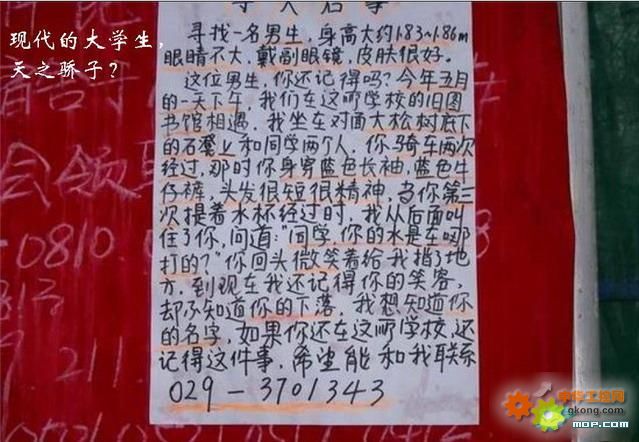 现代的大学生，
天之骄子？
寻人启事
寻找一名男生，身高大约1.83~1.86m
眼睛不大，戴副眼镜，皮肤很好。
这位男生，你还记得吗？今年五月
的一天下午，我们在这所学校的旧图
书馆相遇，我坐在对面大松树底下
的石凳上和同学两个人，你骑车两次
经过，那时你身穿蓝色长袖，蓝色牛
仔裤，头发很短很精神，当你第三
次提着水杯经过时，我从后面叫
住了你，问道："同学，你的水是在哪
打的？"你回头微笑着给我指了地
方，到现在我还记得你的笑容，
却不知道你的下落，我想知道你
的名字，如果你还在这所学校，还
记得这件事，希望能和我联系
029-3701343
会领
-0810
211
gkong.com
MOP.com